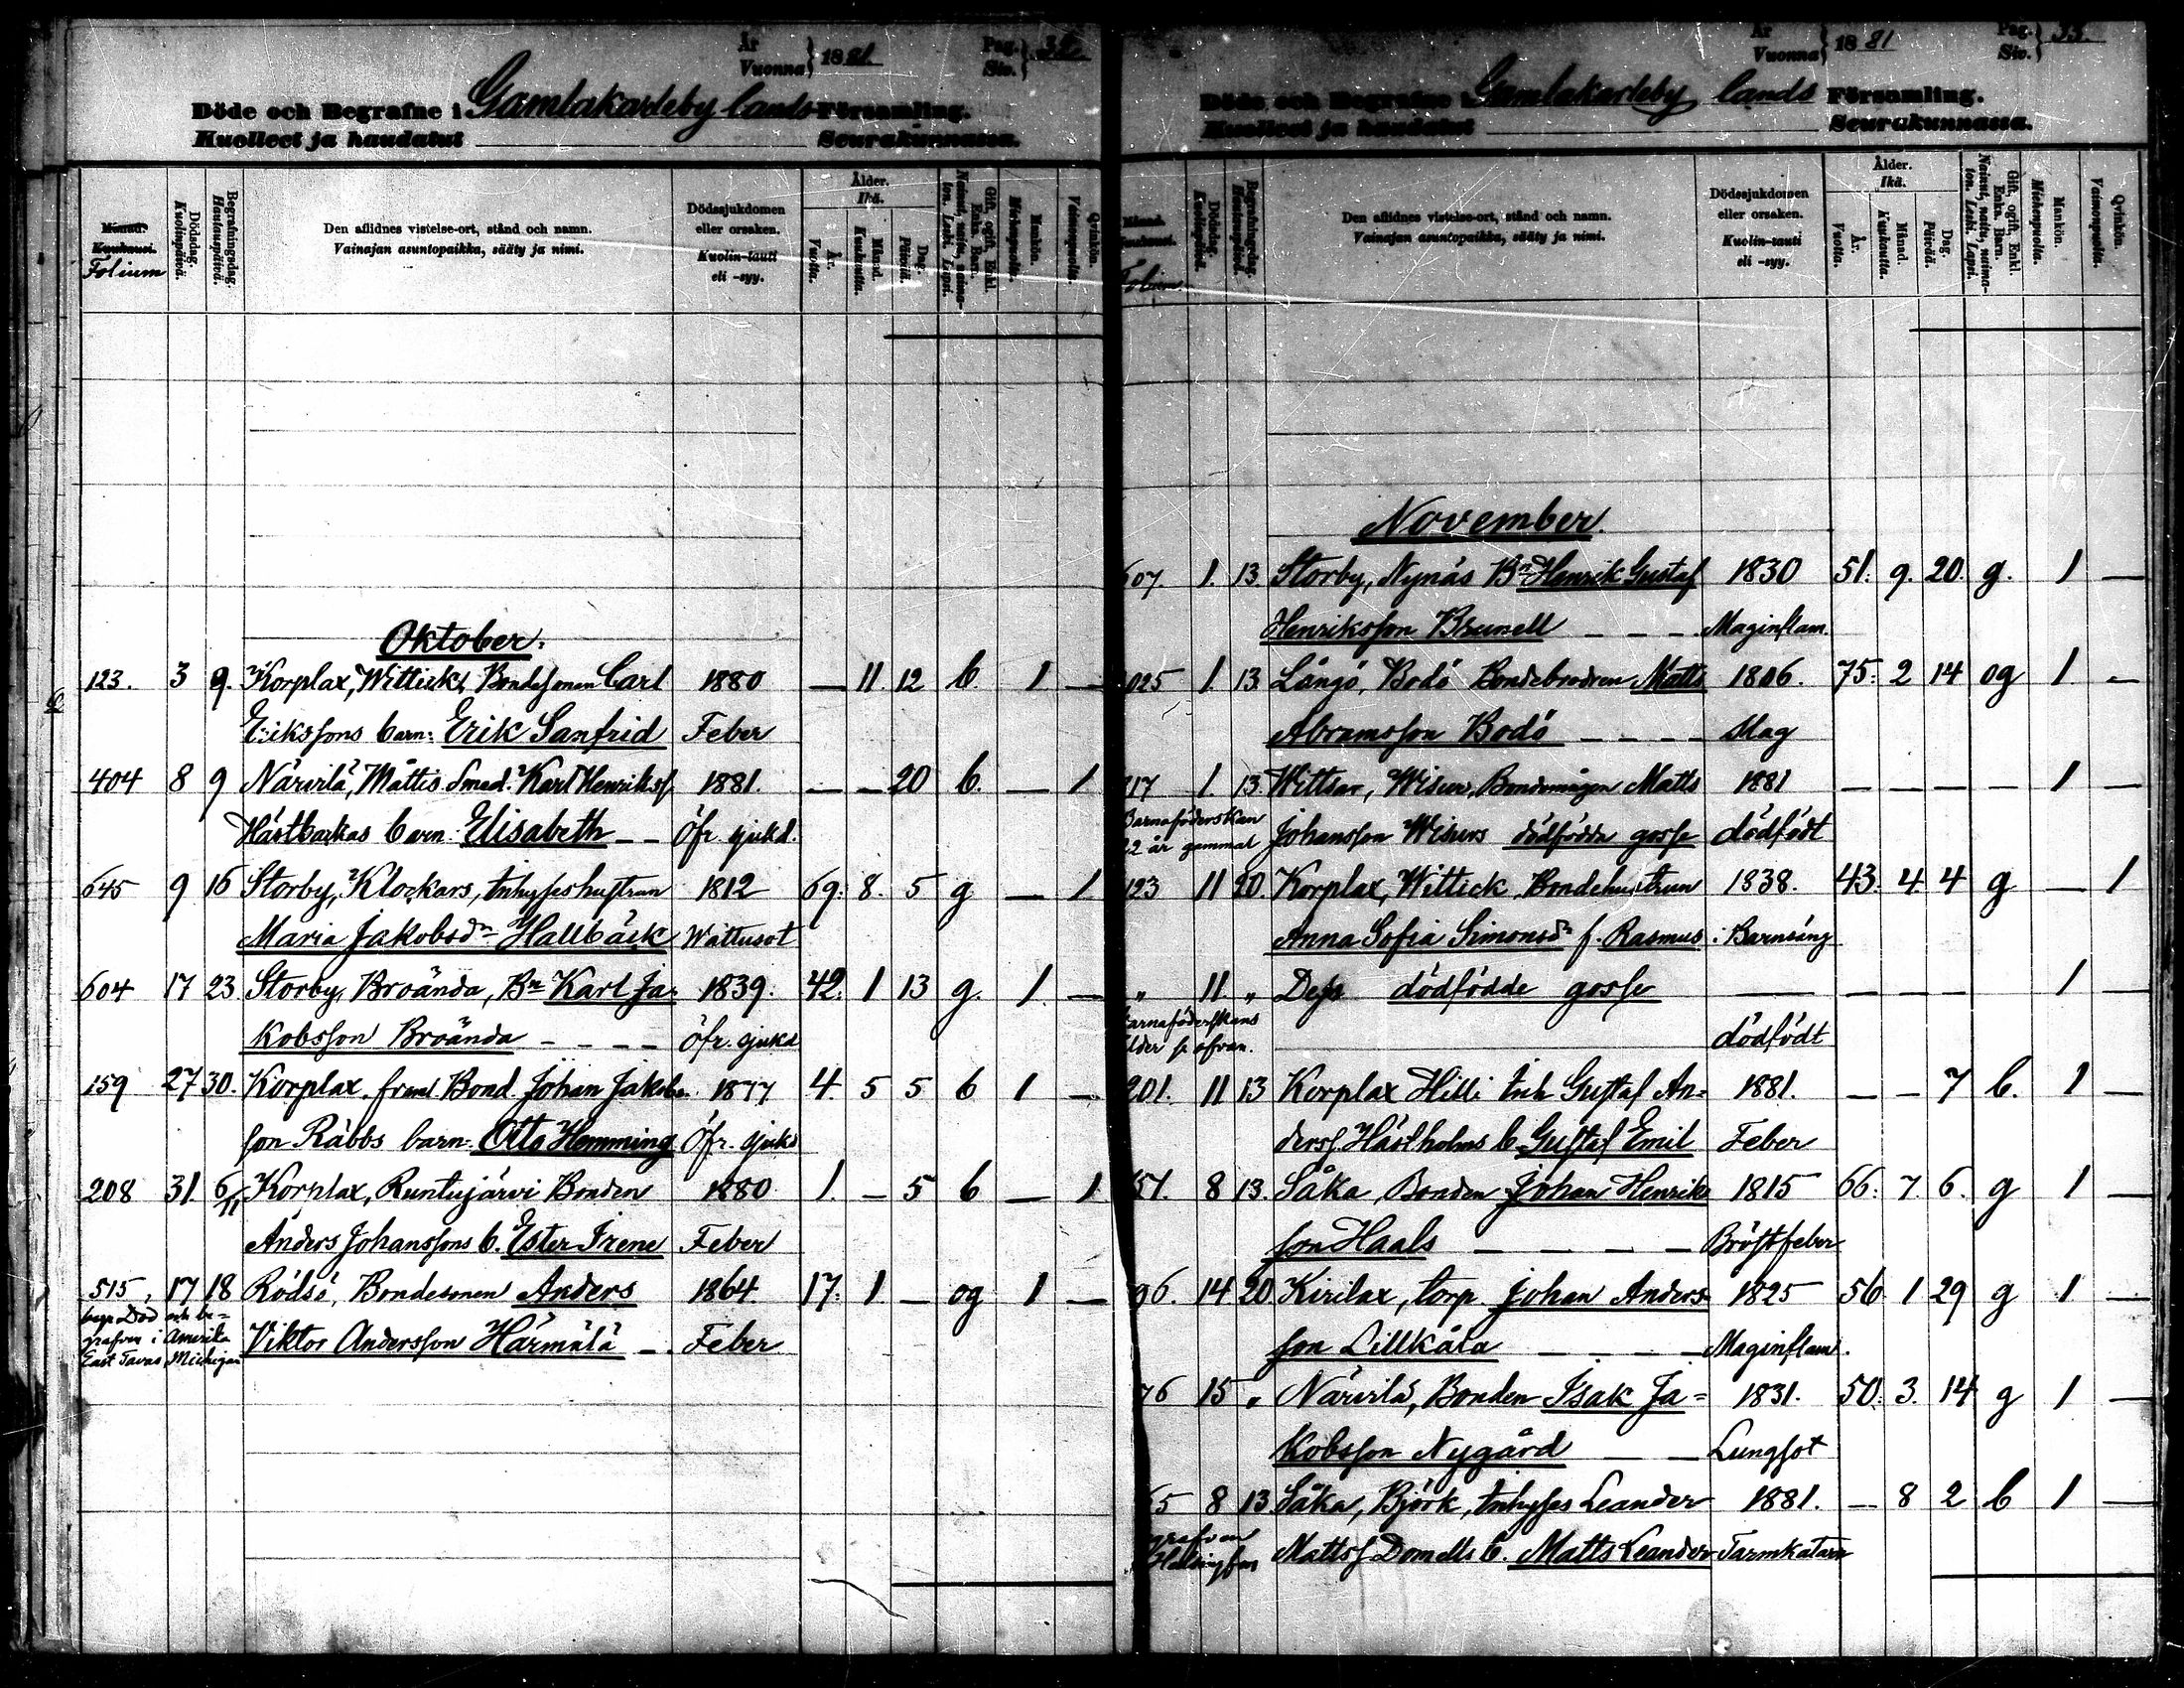 År
Vuonna } 1881. Pag. Siv. }
Döde och Begrafne i Gamlakarleby lands Församling.
Kuolleet ja haudatut Seurakunnassa.
Månad. Kuukausi. Folium
Dödsdag. Kuolinpäivä.
Begrafningsdag. Hautauspäivä.
Den aflidnes vistelse-ort, stånd och namn.
Vainajan asuntopaikka, sääty ja nimi.
Dödssjukdomen eller orsaken.
Kuolin-tauti eli -syy.
Ålder. Ikä.
År. Vuotta.
Månad. Kuukautta.
Dag. Päivää.
Gift, ogift, Enkl. Enka. Barn.
Nainut, naitu, naimaton. Leski. Lapsi.
Mankön. Miehenpuolta.
Qvinkön. Vaimonpuolta.
Oktober.
123. 3 9. Korplax, Wittick, Bondesonen Carl 1880 — 11. 12 b. 1. —
Erikssons barn: Erik Sanfrid Feber
404 8 9 Närvilä, Mattis Smed. Karl Henrikss. 1881. — — 20 b. — 1
Hästbackas barn Elisabeth — — Öfr. sjukd.
645 9 16 Storby, Klockars, Inhyseshustrun 1812 69. 8. 5 g — 1.
Maria Jakobsdr Hallbäck Wattusot
604 17 23 Storby, Broända, Bn Karl Ja- 1839. 42. 1 13 g. 1. —
kobsson Broända — — — — Öfr. sjukd
159 27 30. Korplax. Bond. Johan Jakobs- 1877 4. 5 5 b 1 —
son Räbbs barn: Otto Hemming Öfr. sjukd
208 31 6/11 Korplax, Runtujärvi Bonden 1880 1. — 5 b — 1
Anders Johanssons b. Ester Irene Feber
515, 17 18 Rödsö, Bondesonen Anders 1864. 17. 1 — og 1 —
Död och be-
grafven i Amerika
East Tavas, Michigan
Viktor Andersson Härmälä — Feber
År
Vuonna } 1881 Pag. Siv. } 33.
Döde och Begrafne i Gamlakarleby lands Församling.
Kuolleet ja haudatut Seurakunnassa.
Månad. Kuukausi. Folium
Dödsdag. Kuolinpäivä.
Begrafningsdag. Hautauspäivä.
Den aflidnes vistelse-ort, stånd och namn.
Vainajan asuntopaikka, sääty ja nimi.
Dödssjukdomen eller orsaken.
Kuolin-tauti eli -syy.
Ålder. Ikä.
År. Vuotta.
Månad. Kuukautta.
Dag. Päivää.
Gift, ogift, Enkl. Enka. Barn.
Nainut, naitu, naimaton. Leski. Lapsi.
Mankön. Miehenpuolta.
Qvinkön. Vaimonpuolta.
November.
607. 1. 13. Storby, Nynäs Bn Henrik Gustaf 1830 51. 9. 20. g. 1 —
Henriksson Brunell — — — Maginflam.
025 1. 13. Långö, Bodö Bondebrodren Matts 1806. 75. 2 14 og 1. —
Abramsson Bodö — — — — Slag
217 1 13. Wittsar, Wisur, Bondemågen Matts 1881 — — — — 1 —
Barnaföderskan
22 år gammal
Johansson Wisurs dödfödda gosse dödfödt
123 11 20. Korplax, Wittick Bondehustrun 1838. 43. 4. 4 g — 1
Anna Sofia Simonsdr f. Rasmus i Barnsäng
„ 11. „ Dess dödfödde gosse — — — — 1 —
Barnaföderskans
ålder se ofvan.
dödfödt
201. 11 13 Korplax Hilli Inh Gustaf An- 1881. — — 7 b. 1 —
derss. Hästholms b. Gustaf Emil Feber
51. 8 13. Såka Bonden Johan Henriks- 1815 66. 7. 6. g 1 —
son Haals — — — — Bröstfeber
96. 14 20 Kirilax, torp. Johan Anders- 1825 56 1 29 g 1 —
son Lillkåla — — — — Maginflam.
76 15 „ Närvilä, Bonden Isak Ja- 1831. 50. 3. 14 g 1 —
kobsson Nygård — — Lungsot
65 8 13 Såka, Björk, Inhyses Leander 1881. — 8 2 b 1 —
grafven
Helsingfors
Mattss Domells b. Matts Leander Tarmkatarr